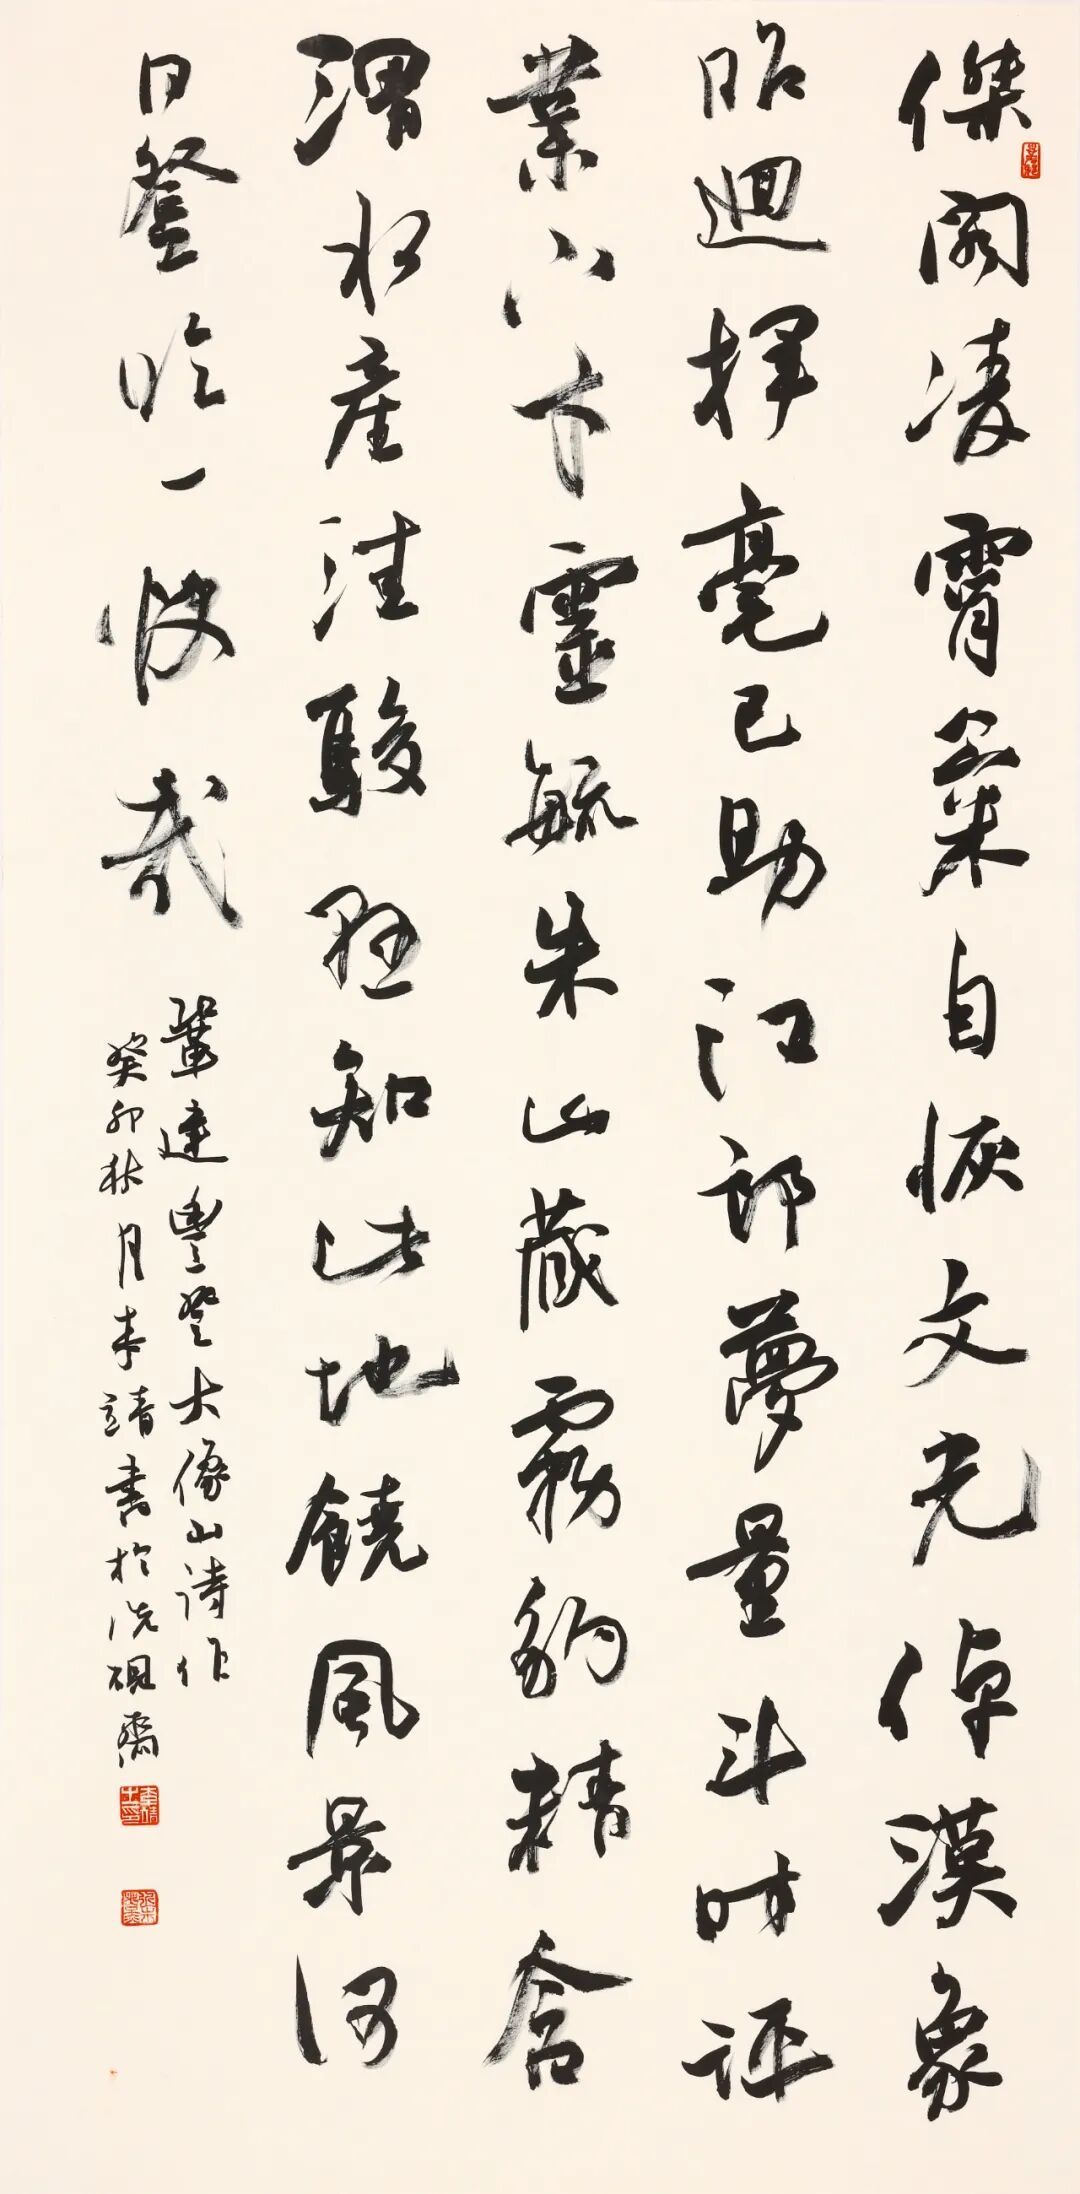 傑閣凌霄氣自恢文光倬漢象
昭迴揮毫已助江郎夢量斗時評
業下才靈毓朱山藏霧豹精含
渭水產洼駿懸知此地饒風景何
日登吟一快哉
鞏建豐登大像山詩作
癸卯秋月靖書於洗硯齋